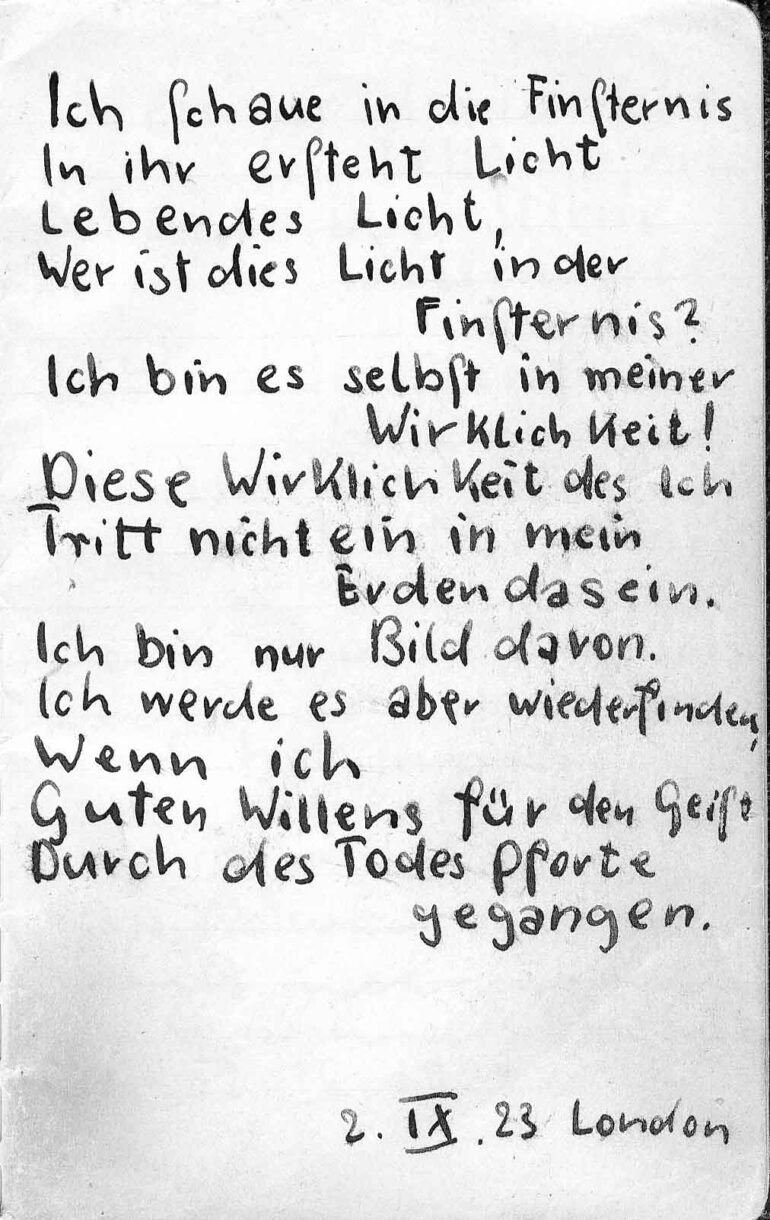 Ich schaue in die Finsternis
In ihr ersteht Licht
Lebendes Licht,
Wer ist dies Licht in der
Finsternis?
Ich bin es selbst in meiner
Wirklichkeit!
Diese Wirklichkeit des Ich
Tritt nicht ein in mein
Erdendasein.
Ich bin nur Bild davon.
Ich werde es aber wiederfinden,
Wenn ich
Guten Willens für den Geist
Durch des Todes Pforte
gegangen.
2. IX. 23 London